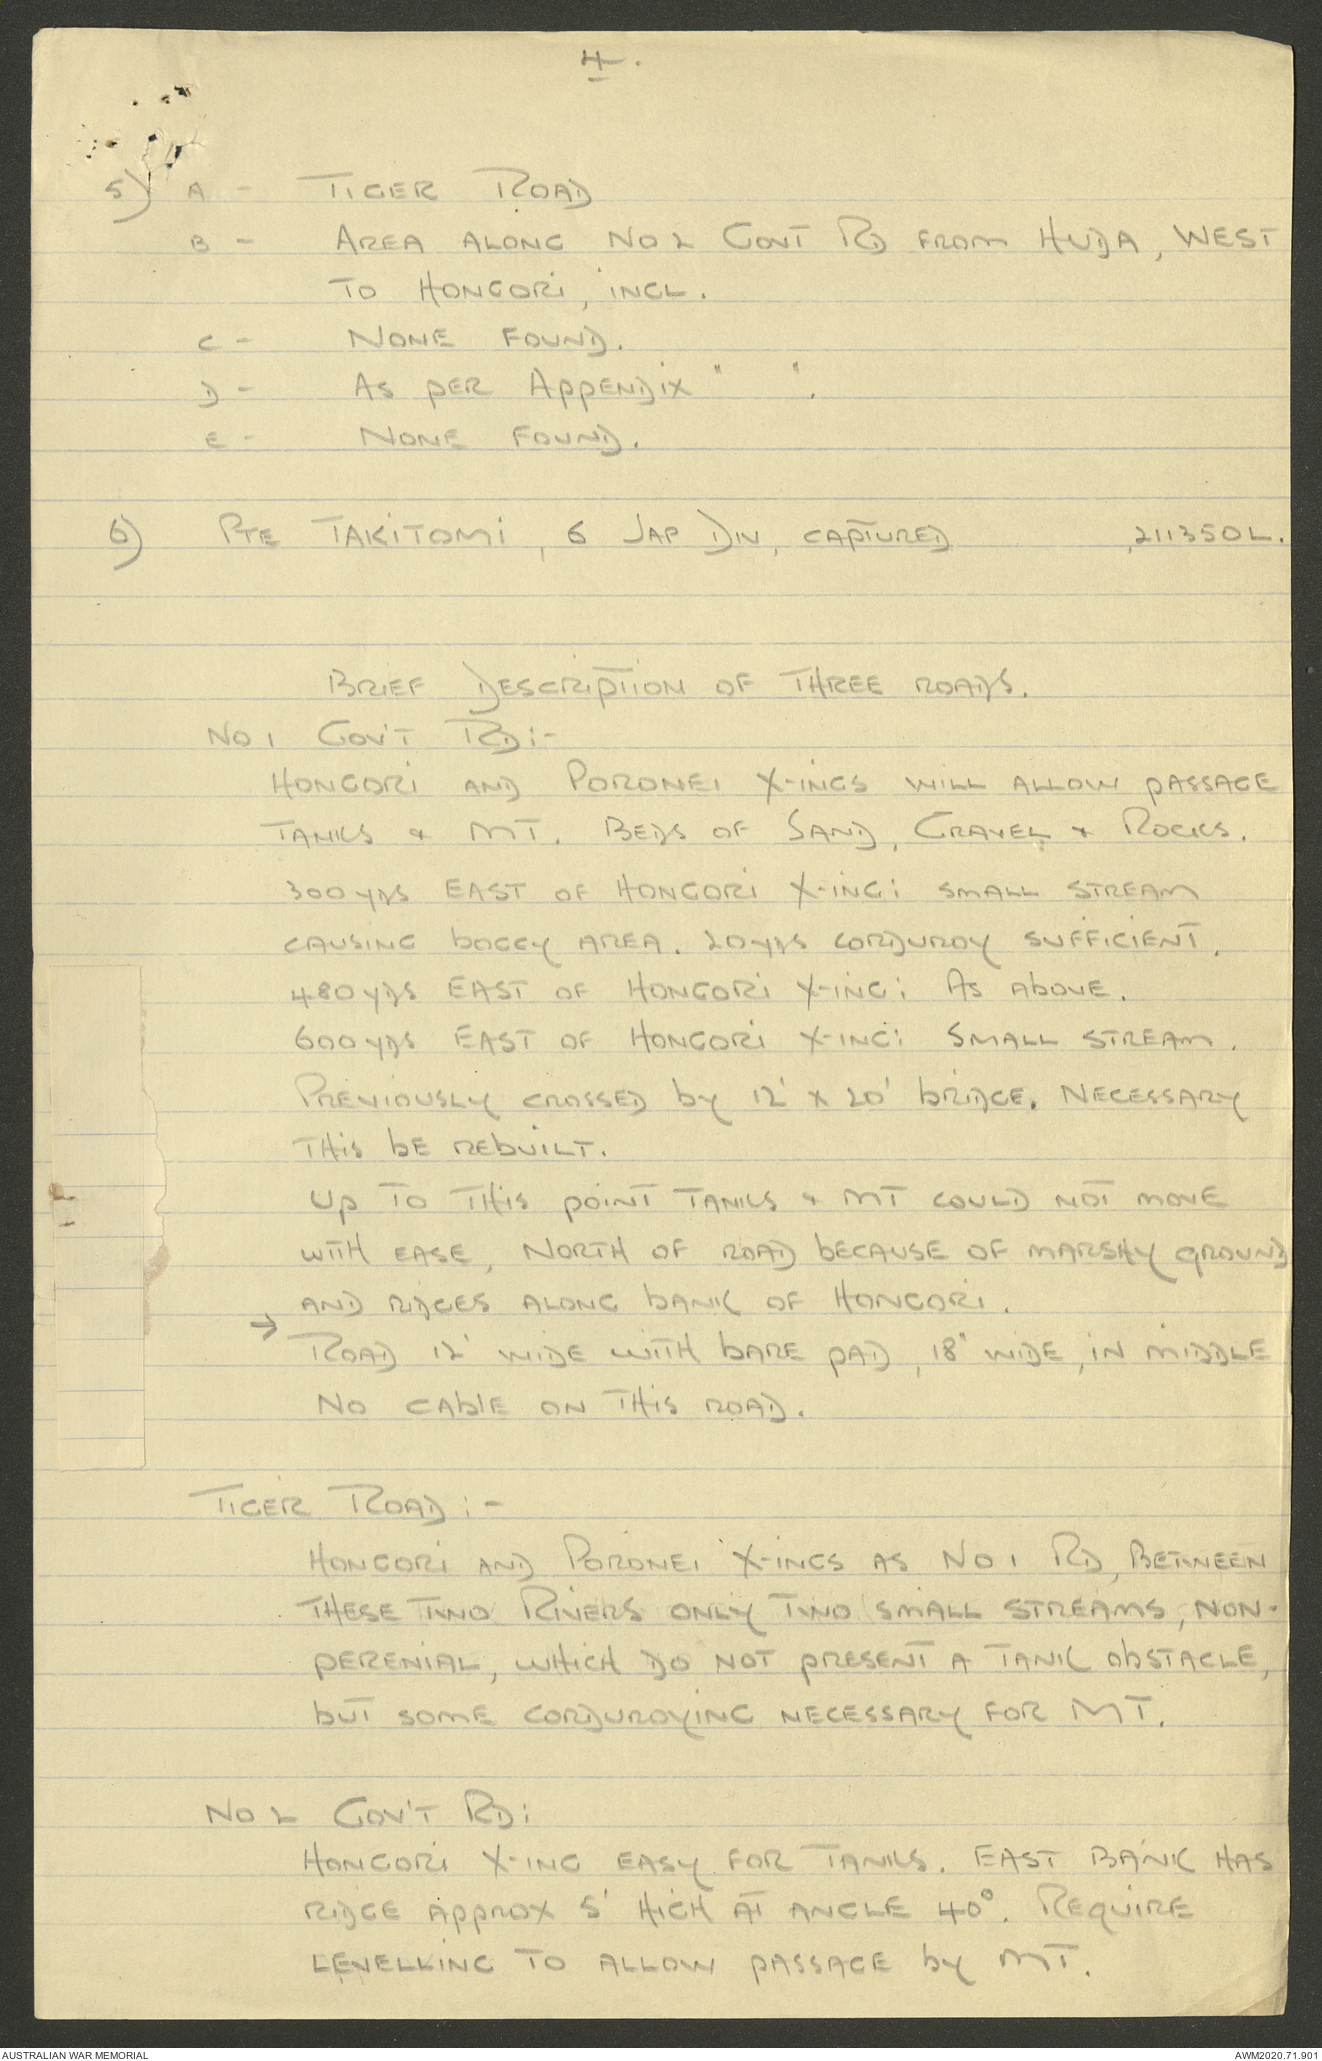 4.
5) A - TIGER ROAD
B - AREA ALONG NO 2 GOVT RD FROM HUDA, WEST
TO HONGORI, INCL.
C - NONE FOUND.
D - AS PER APPENDIX " ".
E - NONE FOUND.
6) PTE TAKITOMI, 6 JAP DIV, CAPTURED , 211350L.
BRIEF DESCRIPTION OF THREE ROADS.
NO 1 GOV'T RD:-
HONGORI AND PORONEI X-INGS WILL ALLOW PASSAGE
TANKS & MT. BEDS OF SAND, GRAVEL & ROCKS.
300 YDS EAST OF HONGORI X-ING: SMALL STREAM
CAUSING BOGGY AREA. 20 YDS CORDUROY SUFFICIENT.
480 YDS EAST OF HONGORI X-ING: AS ABOVE.
600 YDS EAST OF HONGORI X-ING: SMALL STREAM.
PREVIOUSLY CROSSED BY 12' X 20' BRIDGE. NECESSARY
THIS BE REBUILT.
UP TO THIS POINT TANKS & MT COULD NOT MOVE
WITH EASE, NORTH OF ROAD BECAUSE OF MARSHY GROUND
AND RIDGES ALONG BANK OF HONGORI.
→ ROAD 12' WIDE WITH BARE PAD, 18" WIDE, IN MIDDLE
NO CABLE ON THIS ROAD.
TIGER ROAD:-
HONGORI AND PORONEI X-INGS AS NO 1 RD, BETWEEN
THESE TWO RIVERS ONLY TWO SMALL STREAMS, NON-
PERENIAL, WHICH DO NOT PRESENT A TANK OBSTACLE,
BUT SOME CORDUROYING NECESSARY FOR MT.
NO 2 GOV'T RD:
HONGORI X-ING EASY FOR TANKS. EAST BANK HAS
RIDGE APPROX 5' HIGH AT ANGLE 40°. REQUIRE
LEVELLING TO ALLOW PASSAGE BY MT.
AUSTRALIAN WAR MEMORIAL
AWM2020.71.901